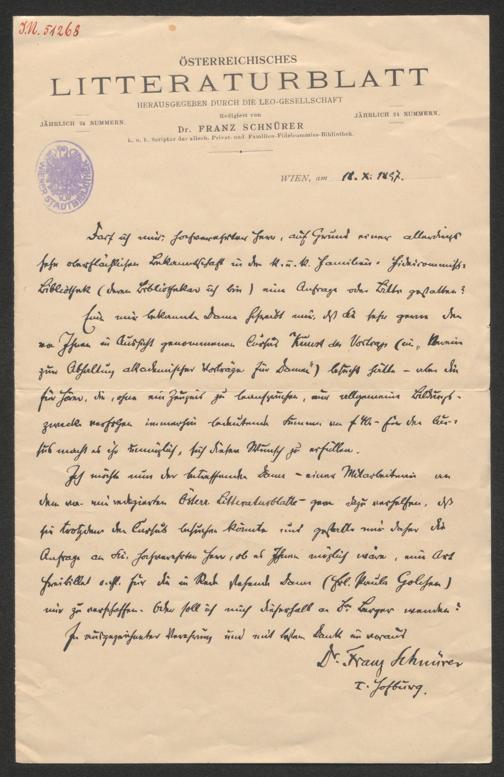 I.N. 51268
ÖSTERREICHISCHES
LITTERATURBLATT
HERAUSGEGEBEN DURCH DIE LEO-GESELLSCHAFT
Redigiert von
JÄHRLICH 24 NUMMERN.
JÄHRLICH 24 NUMMERN.
Dr. FRANZ SCHNÜRER
k. u. k. Scriptor der allerh. Privat- und Familien-Fideicommiss-Bibliothek.
WIENER STADTBIBLIOTHEK
WIEN, am 18. X. 1897.
Darf ich mir, hochverehrter Herr, auf Grund einer allerdings
sehr oberflächlichen Bekanntschaft in der k. u. k. Familien-Fideicommiss-
Bibliothek (deren Bibliothekar ich bin) eine Anfrage oder Bitte gestatten?
Eine mir bekannte Dame schreibt mir, daß sie sehr gern den
von Ihnen in Aussicht genommenen Cursus "Kunst des Vortrags" (im "Verein
zur Abhaltung akademischer Vorträge für Damen") besucht hätte – aber die
für Hörer, die, ohne ein Zeugnis zu beanspruchen, nur allgemeine Bildungs-
zwecke verfolgen immerhin bedeutende Summe von für den Cur-
sus macht es ihr unmöglich, sich diesen Wunsch zu erfüllen.
Ich möchte nun der betreffenden Dame – einer Mitarbeiterin an
dem von mir redigierten Österr. Litteraturblatte – gern dazu verhelfen, daß
sie trotzdem den Cursus besuchen könnte und gestatte mir daher die
Anfrage an Sie, hochverehrter Herr, ob es Ihnen möglich wäre, eine Art
Freibillet für die in Rede stehende Dame (Frl. Paula)
mir zu verschaffen. Oder soll ich mich dieserhalb an Dr. Berger wenden?
In ausgezeichneter Verehrung und mit bestem Dank im voraus
Dr. Franz Schnürer
I. Hofburg.